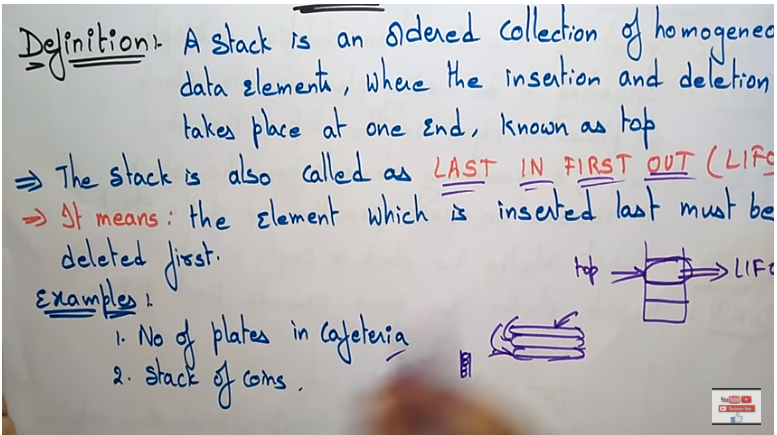 Definition:- A stack is an ordered collection of homogeneo
data elements, where the insertion and deletion
takes place at one end, known as top
⇒ The stack is also called as LAST IN FIRST OUT (LIFO
⇒ It means: the element which is inserted last must be
deleted first.
top LIFO
Examples:
1. No of plates in cafeteria
2. Stack of coins.
YouTube
Subscribe